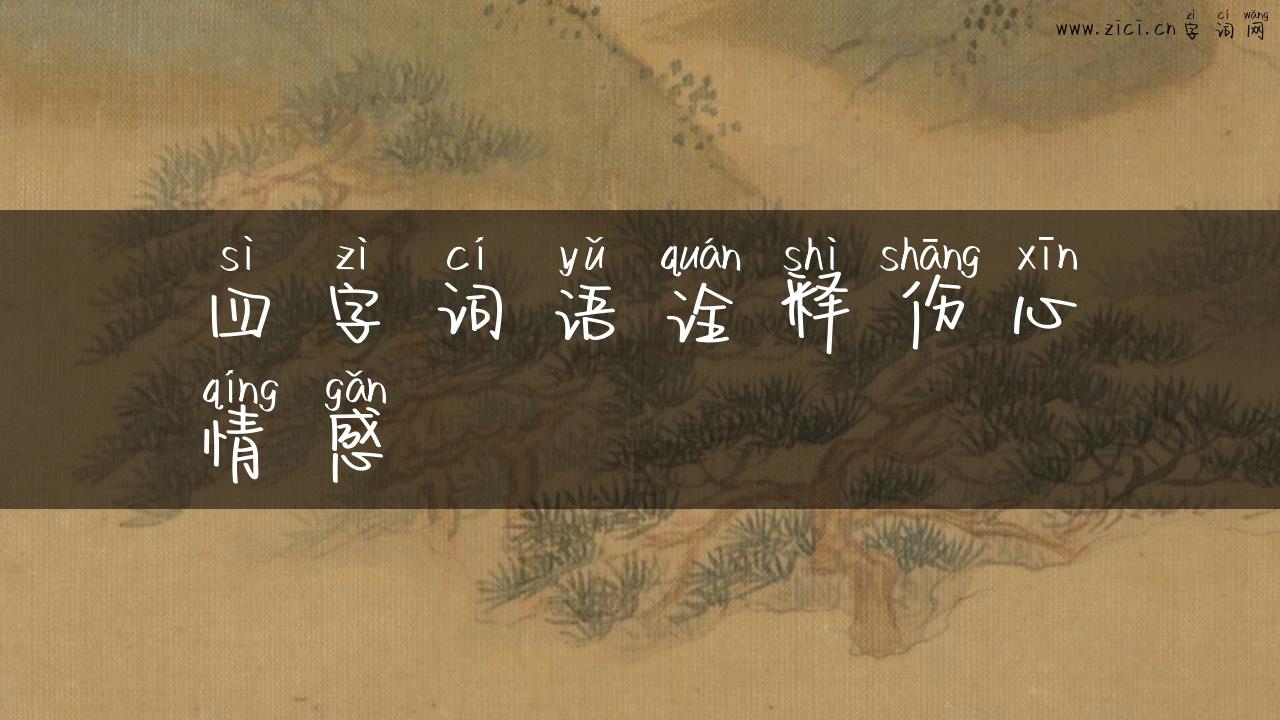 zì cí wǎng
www.zici.cn 字词网
sì zì cí yǔ quán shì shāng xīn
四字词语诠释伤心
qíng gǎn
情感